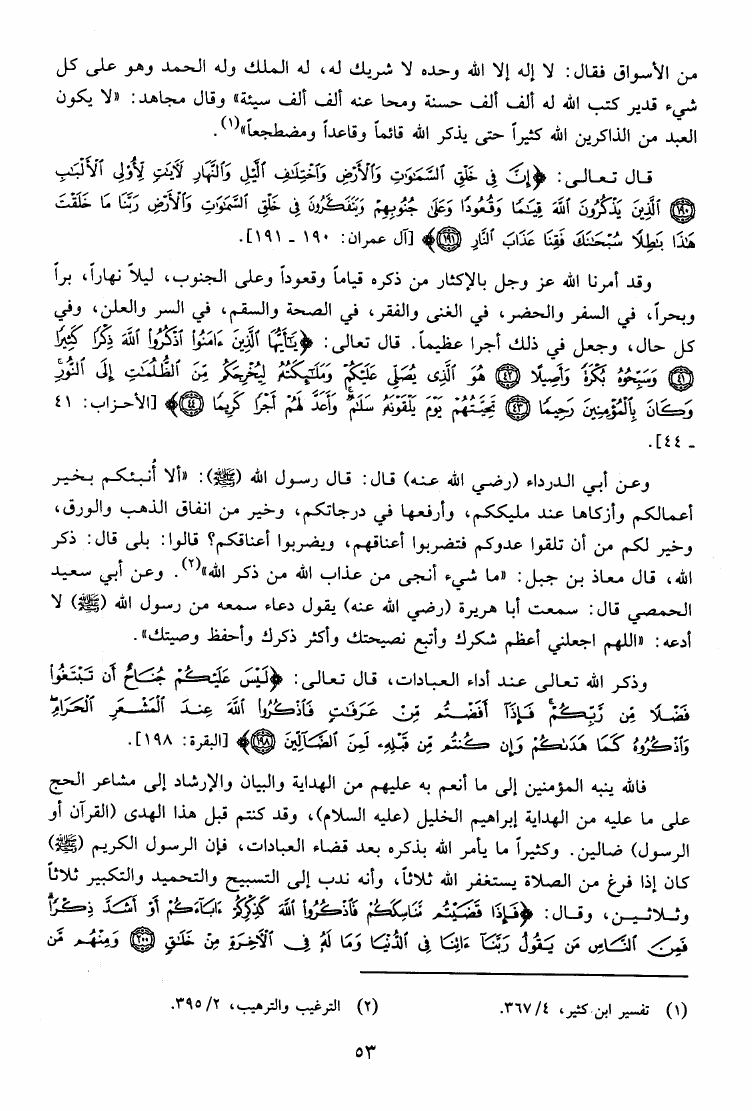 من الأسواق فقال: لا إله إلا الله وحده لا شريك له، له الملك وله الحمد وهو على كل
شيء قدير كتب الله له ألف ألف حسنة ومحا عنه ألف ألف سيئة» وقال مجاهد: «لا يكون
العبد من الذاكرين الله كثيراً حتى يذكر الله قائماً وقاعداً ومضطجعاً»(١).
قال تعالى: ﴿إِنَّ فِي خَلْقِ السَّمَٰوَٰتِ وَالْأَرْضِ وَاخْتِلَٰفِ الَّيْلِ وَالنَّهَارِ لَءَايَٰتٍ لِّأُولِي الْأَلْبَٰبِ
﴿١٩٠﴾ الَّذِينَ يَذْكُرُونَ اللَّهَ قِيَٰمًا وَقُعُودًا وَعَلَىٰ جُنُوبِهِمْ وَيَتَفَكَّرُونَ فِي خَلْقِ السَّمَٰوَٰتِ وَالْأَرْضِ رَبَّنَا مَا خَلَقْتَ
هَٰذَا بَٰطِلًا سُبْحَٰنَكَ فَقِنَا عَذَابَ النَّارِ ﴿١٩١﴾﴾ [آل عمران: ١٩٠ ـ ١٩١].
وقد أمرنا الله عز وجل بالإكثار من ذكره قياماً وقعوداً وعلى الجنوب، ليلاً نهاراً، براً
وبحراً، في السفر والحضر، في الغنى والفقر، في الصحة والسقم، في السر والعلن، وفي
كل حال، وجعل في ذلك أجرا عظيماً. قال تعالى: ﴿يَٰٓأَيُّهَا الَّذِينَ ءَامَنُوا اذْكُرُوا اللَّهَ ذِكْرًا كَثِيرًا
﴿٤١﴾ وَسَبِّحُوهُ بُكْرَةً وَأَصِيلًا ﴿٤٢﴾ هُوَ الَّذِي يُصَلِّي عَلَيْكُمْ وَمَلَٰٓئِكَتُهُ لِيُخْرِجَكُم مِّنَ الظُّلُمَٰتِ إِلَى النُّورِ
وَكَانَ بِالْمُؤْمِنِينَ رَحِيمًا ﴿٤٣﴾ تَحِيَّتُهُمْ يَوْمَ يَلْقَوْنَهُ سَلَٰمٌ وَأَعَدَّ لَهُمْ أَجْرًا كَرِيمًا ﴿٤٤﴾﴾ [الأحزاب: ٤١
ـ ٤٤].
وعن أبي الدرداء (رضي الله عنه) قال: قال رسول الله (ﷺ): «ألا أُنبئكم بخير
أعمالكم وأزكاها عند مليككم، وأرفعها في درجاتكم، وخير من انفاق الذهب والورق،
وخير لكم من أن تلقوا عدوكم فتضربوا أعناقهم، ويضربوا أعناقكم؟ قالوا: بلى قال: ذكر
الله، قال معاذ بن جبل: «ما شيء أنجى من عذاب الله من ذكر الله»(٢). وعن أبي سعيد
الحمصي قال: سمعت أبا هريرة (رضي الله عنه) يقول دعاء سمعه من رسول الله (ﷺ) لا
أدعه: «اللهم اجعلني أعظم شكرك وأتبع نصيحتك وأكثر ذكرك وأحفظ وصيتك».
وذكر الله تعالى عند أداء العبادات، قال تعالى: ﴿لَيْسَ عَلَيْكُمْ جُنَاحٌ أَن تَبْتَغُوا
فَضْلًا مِّن رَّبِّكُمْ فَإِذَا أَفَضْتُم مِّنْ عَرَفَٰتٍ فَاذْكُرُوا اللَّهَ عِندَ الْمَشْعَرِ الْحَرَامِ
وَاذْكُرُوهُ كَمَا هَدَىٰكُمْ وَإِن كُنتُم مِّن قَبْلِهِ لَمِنَ الضَّآلِّينَ ﴿١٩٨﴾﴾ [البقرة: ١٩٨].
فالله ينبه المؤمنين إلى ما أنعم به عليهم من الهداية والبيان والإرشاد إلى مشاعر الحج
على ما عليه من الهداية إبراهيم الخليل (عليه السلام)، وقد كنتم قبل هذا الهدى (القرآن أو
الرسول) ضالين. وكثيراً ما يأمر الله بذكره بعد قضاء العبادات، فإن الرسول الكريم (ﷺ)
كان إذا فرغ من الصلاة يستغفر الله ثلاثاً، وأنه ندب إلى التسبيح والتحميد والتكبير ثلاثاً
وثلاثين، وقال: ﴿فَإِذَا قَضَيْتُم مَّنَٰسِكَكُمْ فَاذْكُرُوا اللَّهَ كَذِكْرِكُمْ ءَابَآءَكُمْ أَوْ أَشَدَّ ذِكْرًا
فَمِنَ النَّاسِ مَن يَقُولُ رَبَّنَآ ءَاتِنَا فِي الدُّنْيَا وَمَا لَهُ فِي الْءَاخِرَةِ مِنْ خَلَٰقٍ ﴿٢٠٠﴾ وَمِنْهُم مَّن
(١) تفسير ابن كثير، ٣٦٧/٤. (٢) الترغيب والترهيب، ٣٩٥/٢.
٥٣